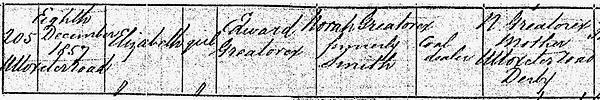 205
Eighth
December
1857
Uttoxeter Road
Elizabeth
girl
Edward
Greatorex
Norah Greatorex
formerly
Smith
Coal
dealer
N. Greatorex
Mother
Uttoxeter Road
Derby